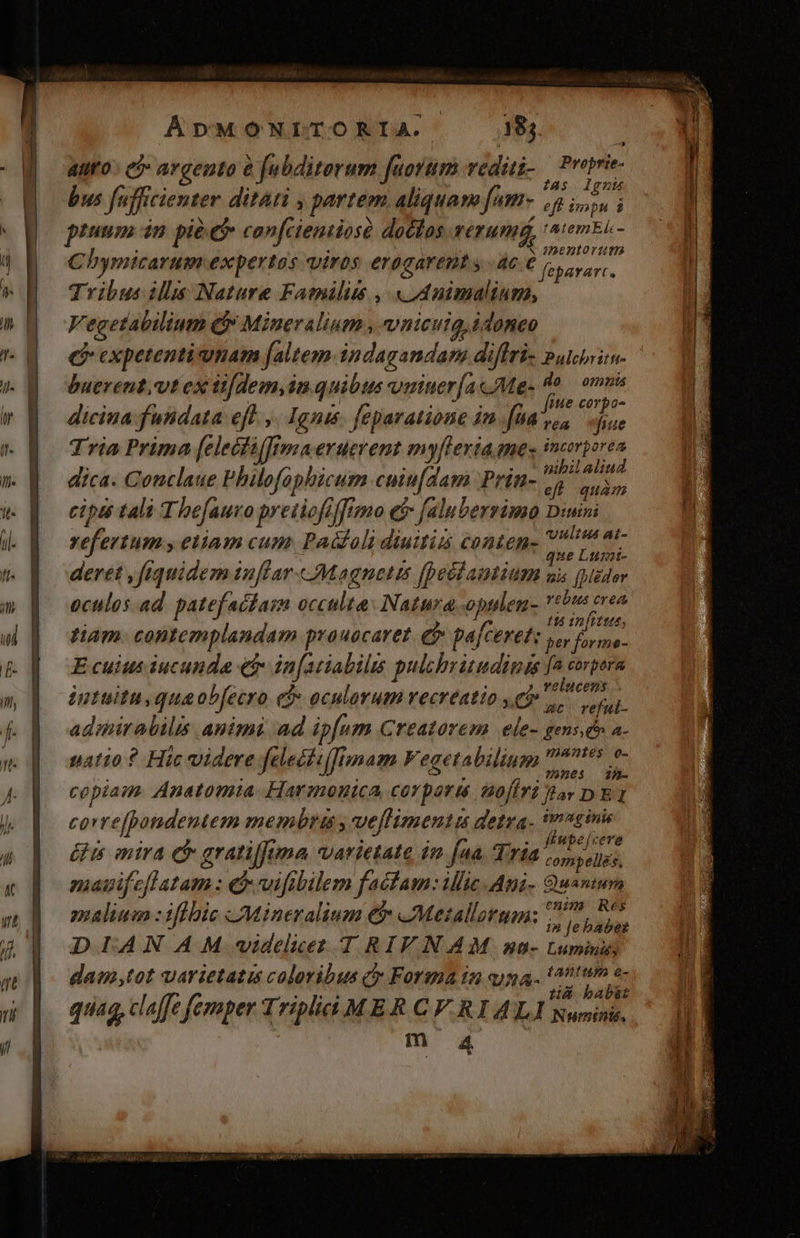 ADMONITORIA. 183
auro & argento è ſubditorum ſuorum rediti-
bus ſufficienter ditati, partem aliquam ſum-
ptuum in piè & conſcientiosè doctos rerumq́,
Chymicarum expertos viros erogarent, ac è
Tribus illis Naturæ Familiis, Animalium,
Vegetabilium & Mineralium, vnicuiq, idoneo
& expetenti vnam ſaltem indagandam diſtri-
buerent, vt ex iiſdem, in quibus vniuerſa Me-
dicina fundata eſt, Ignis ſeparatione in ſua
Tria Prima ſelectiſſima eruerent myſteria me-
dica. Conclaue Philoſophicum cuiuſdam Prin-
cipis tali Theſauro pretioſiſſimo & ſaluberrimo
refertum, etiam cum Pactoli diuitiis conten-
deret, ſiquidem inſtar Magnetis ſpectantium
oculos ad patefactam occultæ Naturæ opulen-
tiam contemplandam prouocaret & paſceret:
E cuius iucunda & inſatiabilis pulchritudinis
intuitu, quæ obſecro & oculorum recreatio, &
admirabilis animi ad ipſum Creatorem ele-
uatio? Hic videre ſelectiſſimam Vegetabilium
copiam Anatomia Harmonica corporis noſtri
correſpondentem membris, veſtimentis detra-
ctis mira & gratiſſima varietate in ſua Tria
manifeſtatam: & viſibilem factam: illic Ani-
malium: iſthic Mineralium & Metallorum:
DIANAM videlicet TRIVNAM nu-
dam, tot varietatis coloribus & Forma in vna-
quaq, claſſe ſemper Triplici MERCVRIALI
Proprie-
tas Ignis
eſt impu è
ratem Ele-
mentorum
ſeparare.
Pulchritu-
do omnis
ſiue corpo-
rea ſiue
incorporea
nihil aliud
eſt quàm
Diuini
vultus at-
que Lumi-
nis ſplẽdor
rebus crea
tis inſitus,
per forme-
ſa corpora
relucens
ac reful-
gens, & a-
mantes o-
mnes in-
ſtar DEI
imaginis
ſtupeſcere
compellẽs.
Quantum
enim Res
in ſe habet
Luminis,
tantum e-
tiã habet
Numinis.
m 4